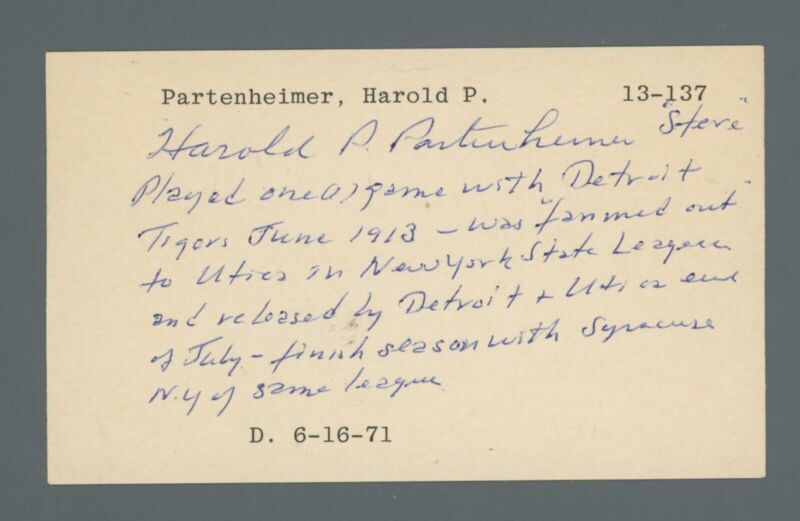 Partenheimer, Harold P. 13-137
Harold P. Partenheimer "Steve"
Played one (1) game with Detroit
Tigers June 1913 - was "farmed out"
to Utica in New York State League
and released by Detroit & Utica end
of July - finish season with Syracuse
N.Y of same league
D. 6-16-71